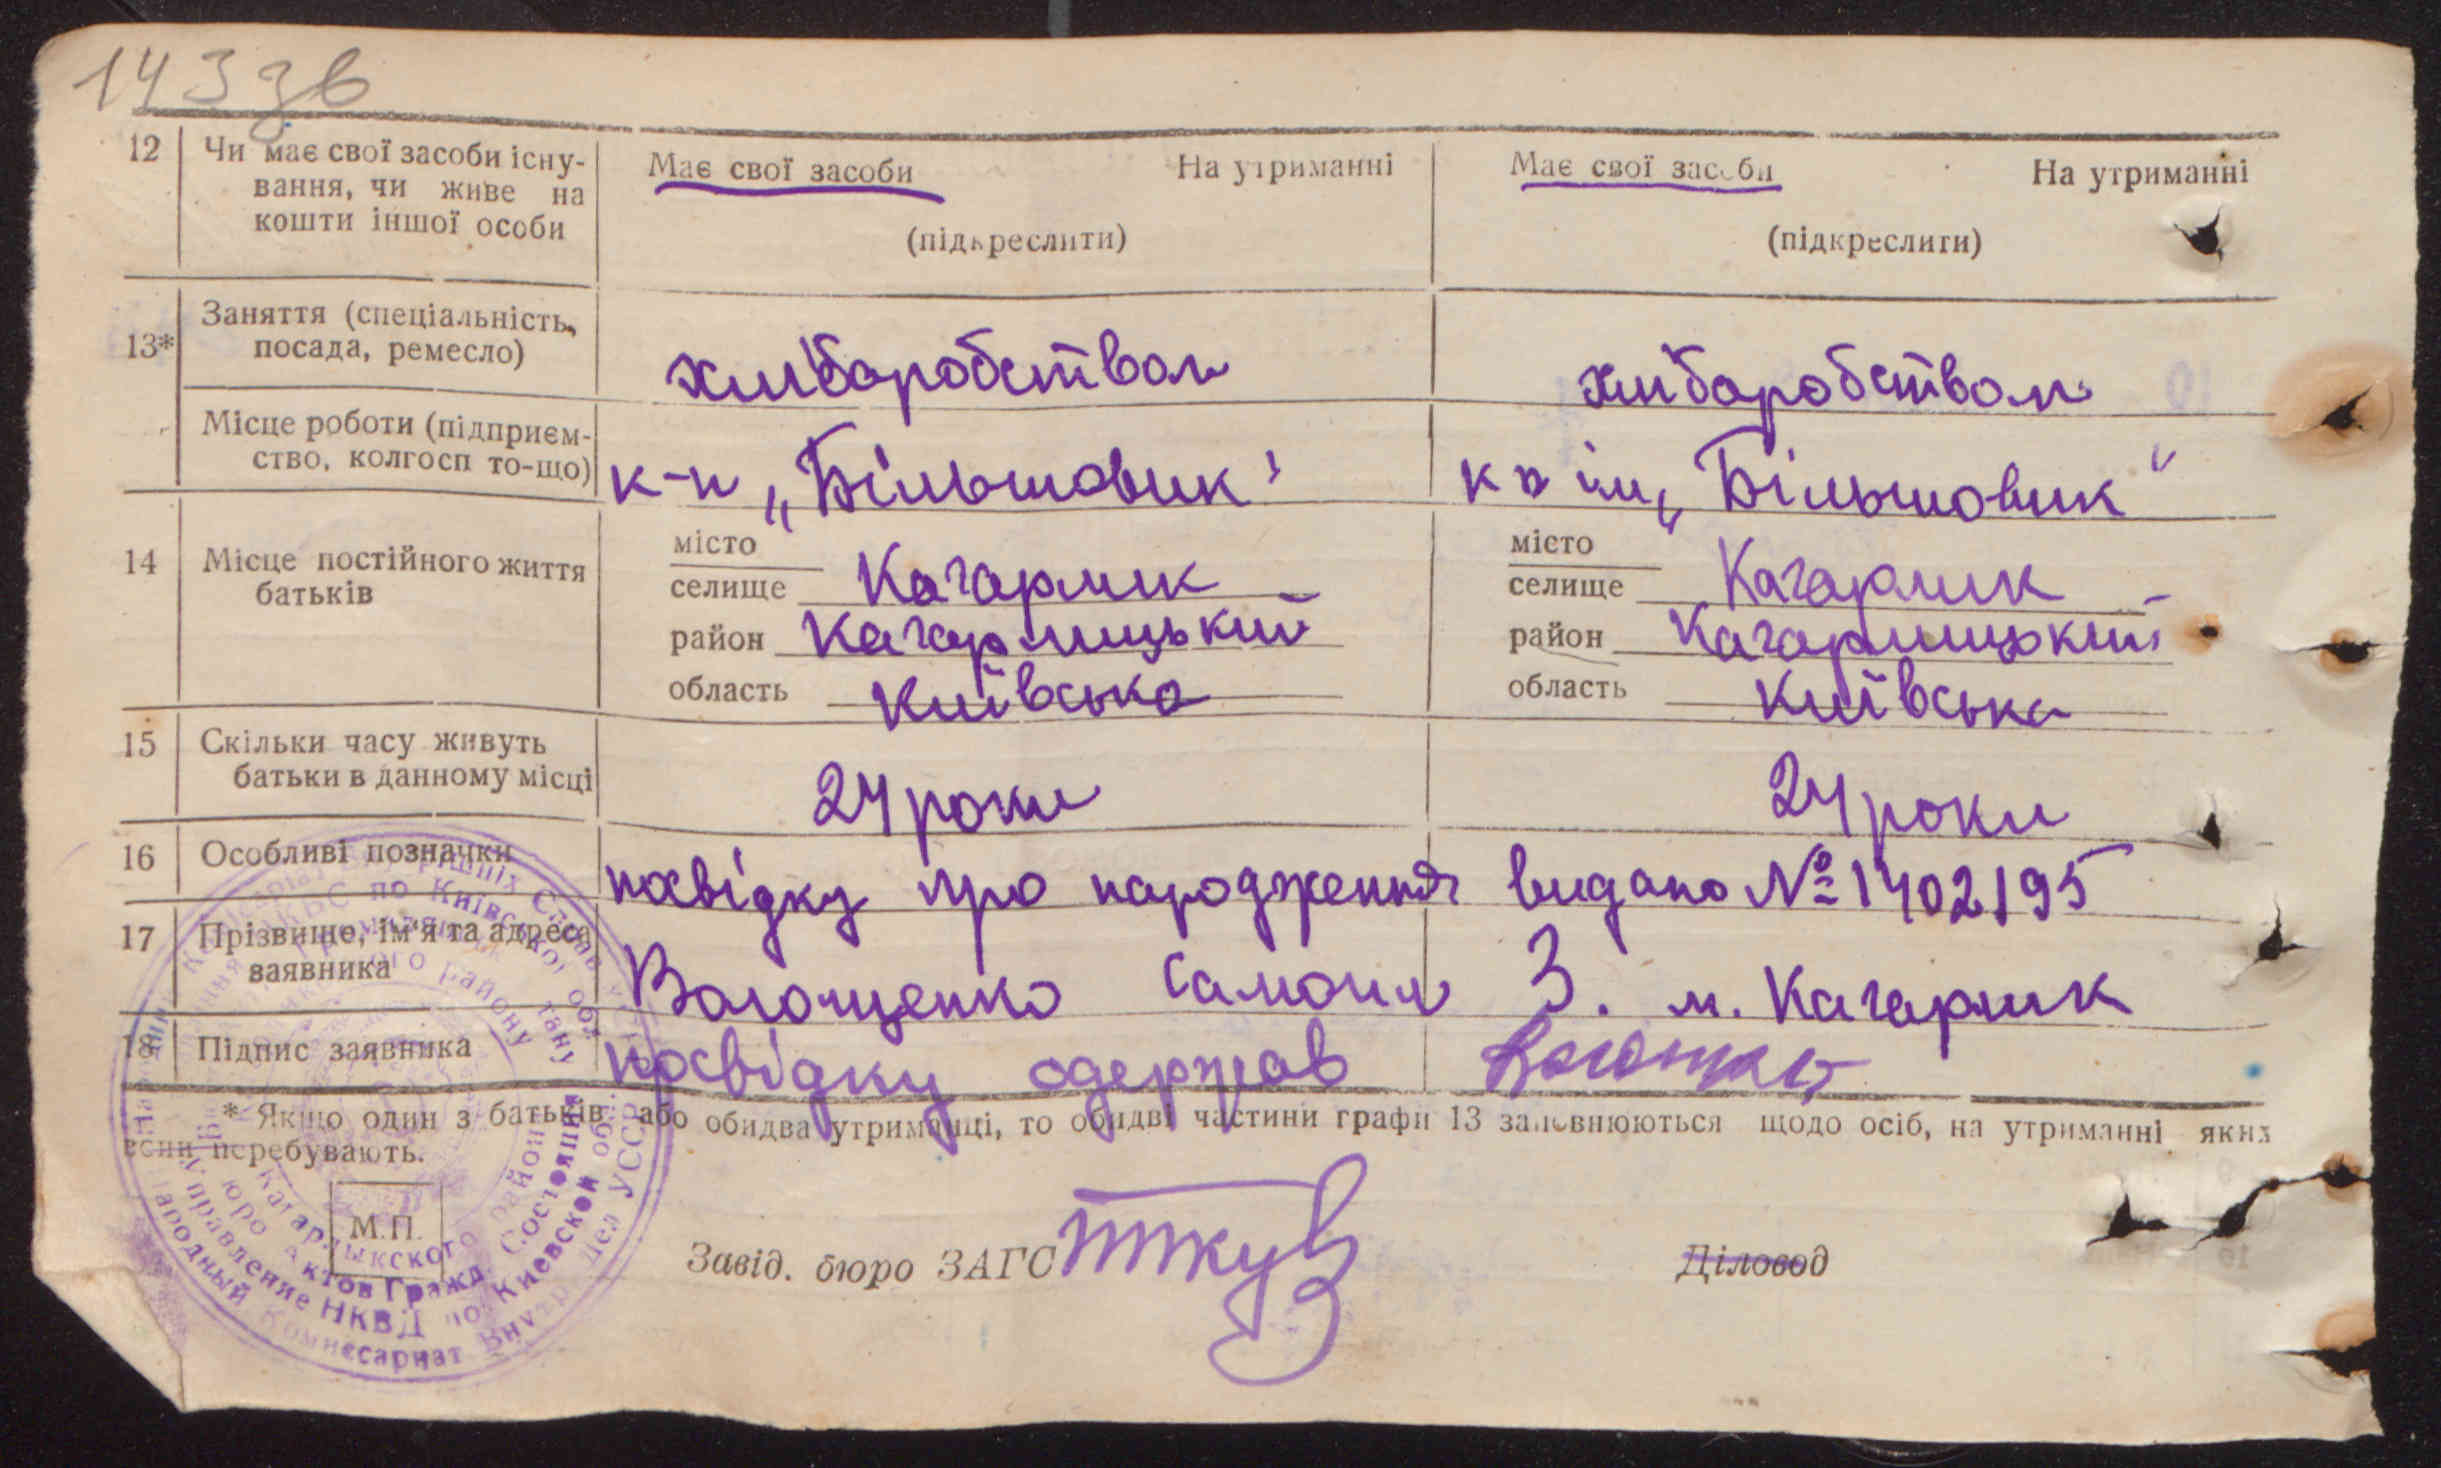 143 зв
12 Чи має свої засоби існу- Має свої засоби На утриманні Має свої засоби На утриманні
вання, чи живе на
кошти іншої особи (підкреслити) (підкреслити)
Заняття (спеціальність,
13* посада, ремесло) хліборобством хліборобством
Місце роботи (підприєм-
ство, колгосп то-що) к-п „Більшовик" к п ім „Більшовик"
місто місто
14 Місце постійного життя селище Кагарлик селище Кагарлик
батьків
район Кагарлицький район Кагарлицький
область Київська область Київська
15 Скільки часу живуть
батьки в данному місці 24 роки 24 роки
16 Особливі позначки посвідку про народження видано № 1402195
17 Прізвище, ім'я та адреса
заявника Самоил З. м. Кагарлик
18 Підпис заявника посвідку одержав
* Якщо один з батьків або обидва утриманці, то обидві частини графи 13 заповнюються щодо осіб, на утриманні яких
вони перебувають.
М.П.
Завід. бюро ЗАГС Діловод
Народный Комиссариат Внутр. Дел УССР
Управление НКВД по Киевской обл.
Бюро Актов Гражд. Состояния
Кагарлыкского района